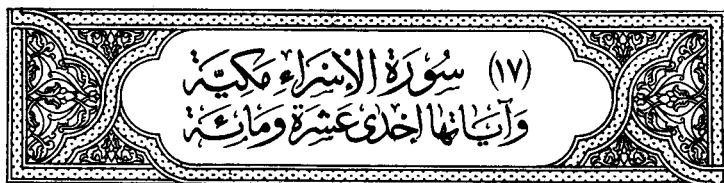 (١٧) سُورَةُ الإِسْرَاءِ مَكِّيَّة
وَآيَاتُهَا إِحْدَى عَشْرَةَ وَمَائَة